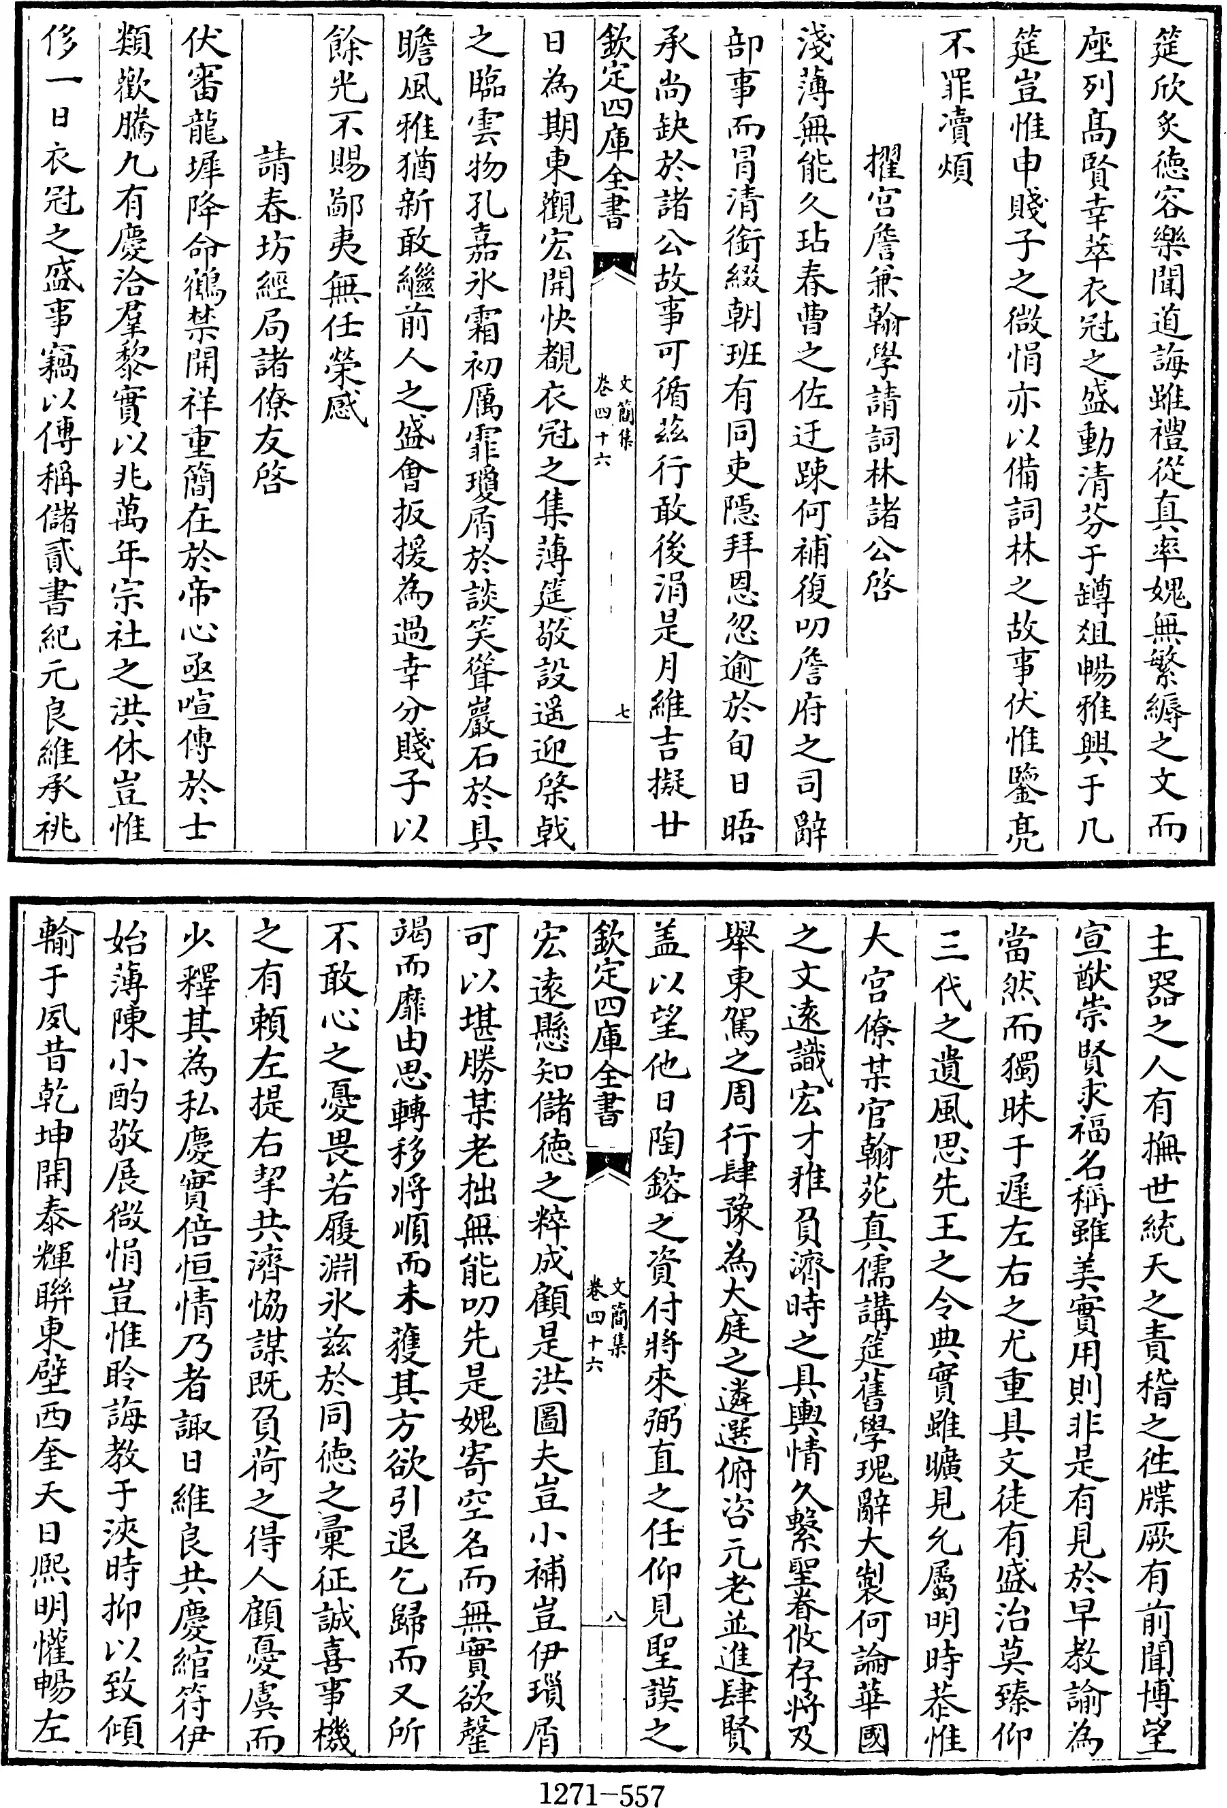 筵欣炙徳容樂聞道誨雖禮從真率媿無繁縟之文而
座列髙賢幸萃衣冠之盛動清芬于罇俎暢雅興于几
筵豈惟申賤子之微悃亦以備詞林之故事伏惟鑒亮
不罪瀆煩
擢宫詹兼翰學請詞林諸公啓
淺薄無能久玷春曹之佐迂踈何補復叨詹府之司辭
部事而冒清銜綴朝班有同吏隠拜恩忽逾於旬日晤
承尚缺於諸公故事可循兹行敢後涓是月維吉擬廿
欽定四庫全書
文簡集
卷四十六
七
日為期東觀宏開快覩衣冠之集薄筵敬設遥迎棨戟
之臨雲物孔嘉氷霜初厲霏瓊屑於談笑聳巖石於具
瞻風雅猶新敢繼前人之盛會扳援為過幸分賤子以
餘光不賜鄙夷無任榮感
請春坊經局諸僚友啓
伏審龍墀降命鶴禁開祥重簡在於帝心亟喧傳於士
類歡騰九有慶洽羣黎實以兆萬年宗社之洪休豈惟
侈一日衣冠之盛事竊以傳稱儲貳書紀元良維承祧
主器之人有撫世統天之責稽之徃牒厥有前聞博望
宣猷崇賢求福名稱雖美實用則非是有見於早教諭為
當然而獨昧于選左右之尤重具文徒有盛治莫臻仰
三代之遺風思先王之令典實雖曠見允屬明時恭惟
大宫僚某官翰苑真儒講筵舊學瑰辭大製何論華國
之文逺識宏才稚負濟時之具輿情久繫聖眷攸存將及
舉東駕之周行肆豫為大庭之遴選俯咨元老並進肆賢
盖以望他日陶鎔之資付將來弼直之任仰見聖謨之
欽定四庫全書
文簡集
卷四十六
八
宏逺懸知儲徳之粹成顧是洪圖夫豈小補豈伊瑣屑
可以堪勝某老拙無能叨先是媿寄空名而無實欲罄
竭而靡由思轉移將順而未獲其方欲引退乞歸而又所
不敢心之憂畏若履淵氷兹於同徳之彙征誠喜事機
之有賴左提右挈共濟恊謀既負荷之得人顧憂虞而
少釋其為私慶實倍恒情乃者諏日維良共慶綰符伊
始薄陳小酌敬展微悃豈惟聆誨教于浹時抑以致傾
輸于夙昔乾坤開泰輝聨東壁西奎天日熈明懽暢左
1271-557